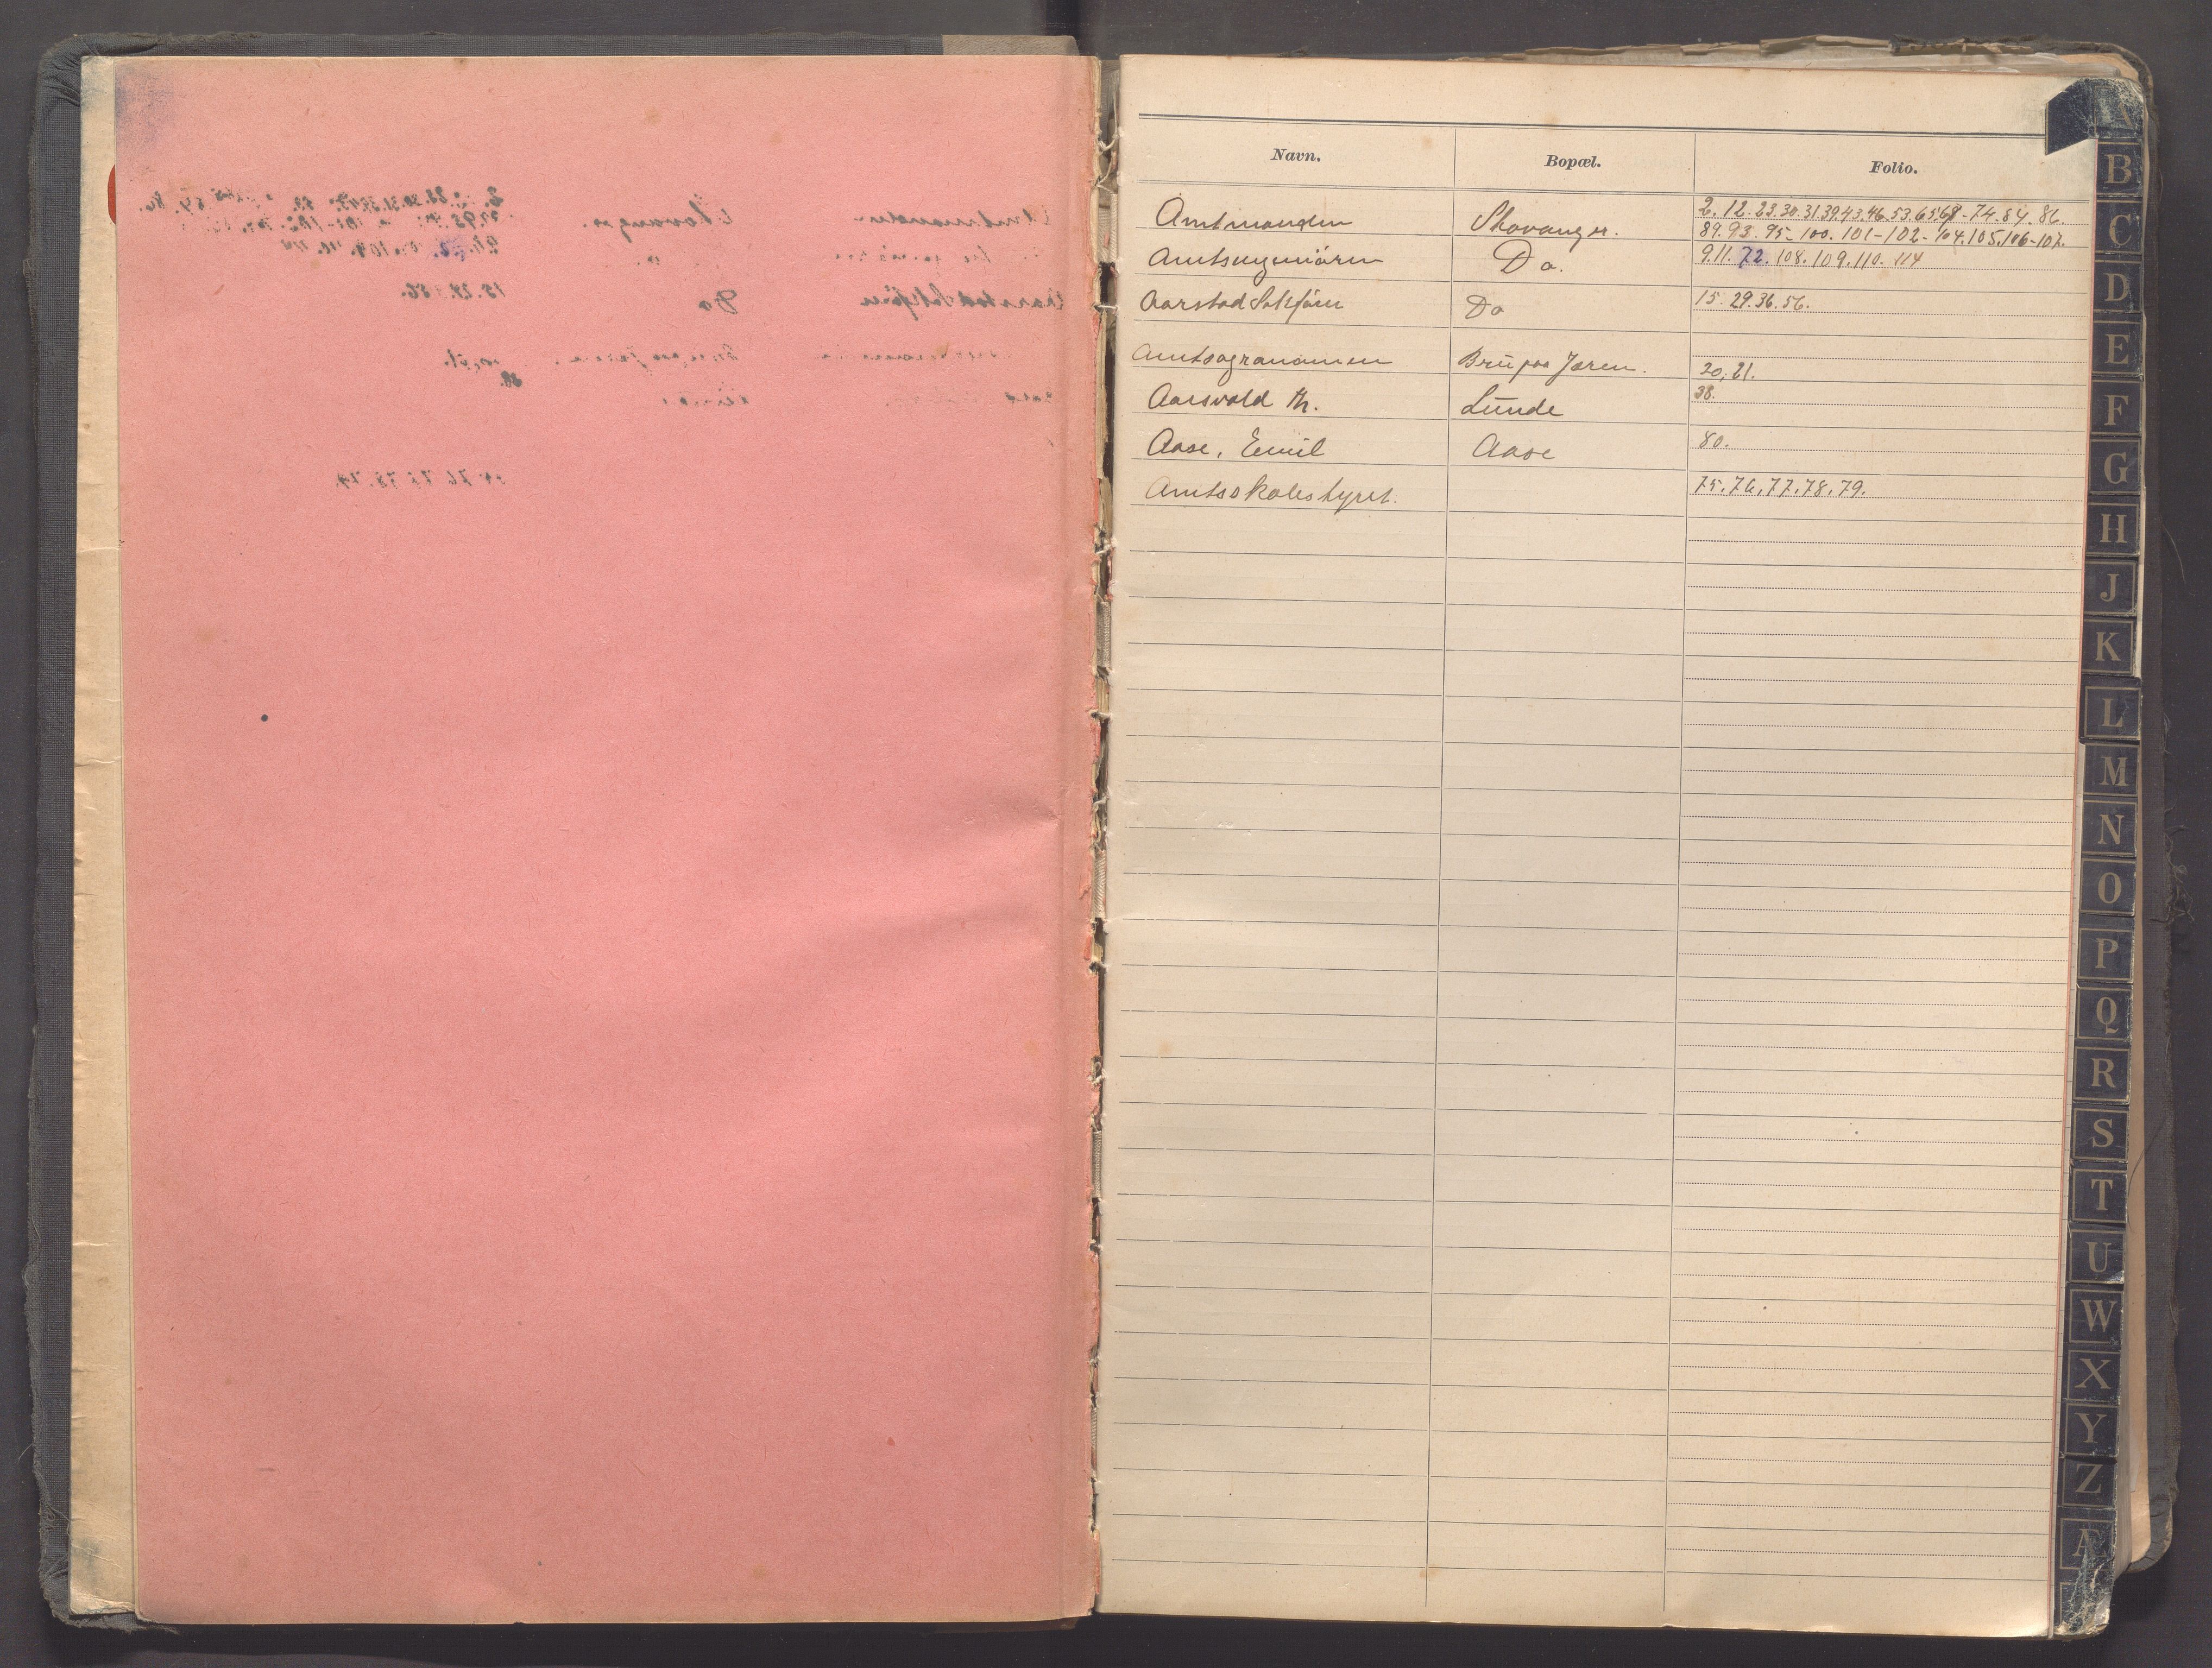 Navn. Bopæl. Folio.
Amtmanden Stavanger. 2. 12. 23. 30. 31. 39. 43. 46. 53. 65. 68 - 74. 84. 86.
89. 93. 95 - 100. 101 - 102 - 104. 105. 106 - 107.
Amtsingeniören Do. 9. 11. 72. 108. 109. 110. 114
Aarstad Sakförer Do 15. 29. 36. 56.
Amtsagronomen Bru paa Jæren. 20, 21.
Aarsvold Th. Lunde 38.
Aase, Emil Aase 80.
Amtsskolestyret. 75. 76, 77. 78. 79.
B
C
D
E
F
G
H
J
K
L
M
N
O
P
Q
R
S
T
U
W
X
Y
Z